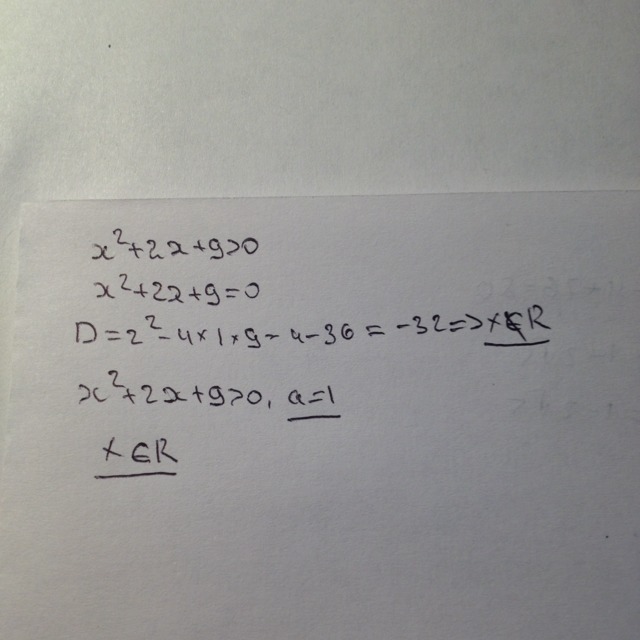 x²+2x+9>0
x²+2x+9=0
D=2²-4×1×9=4-36=-32=>x∉R
x²+2x+9>0, a=1
x∈R